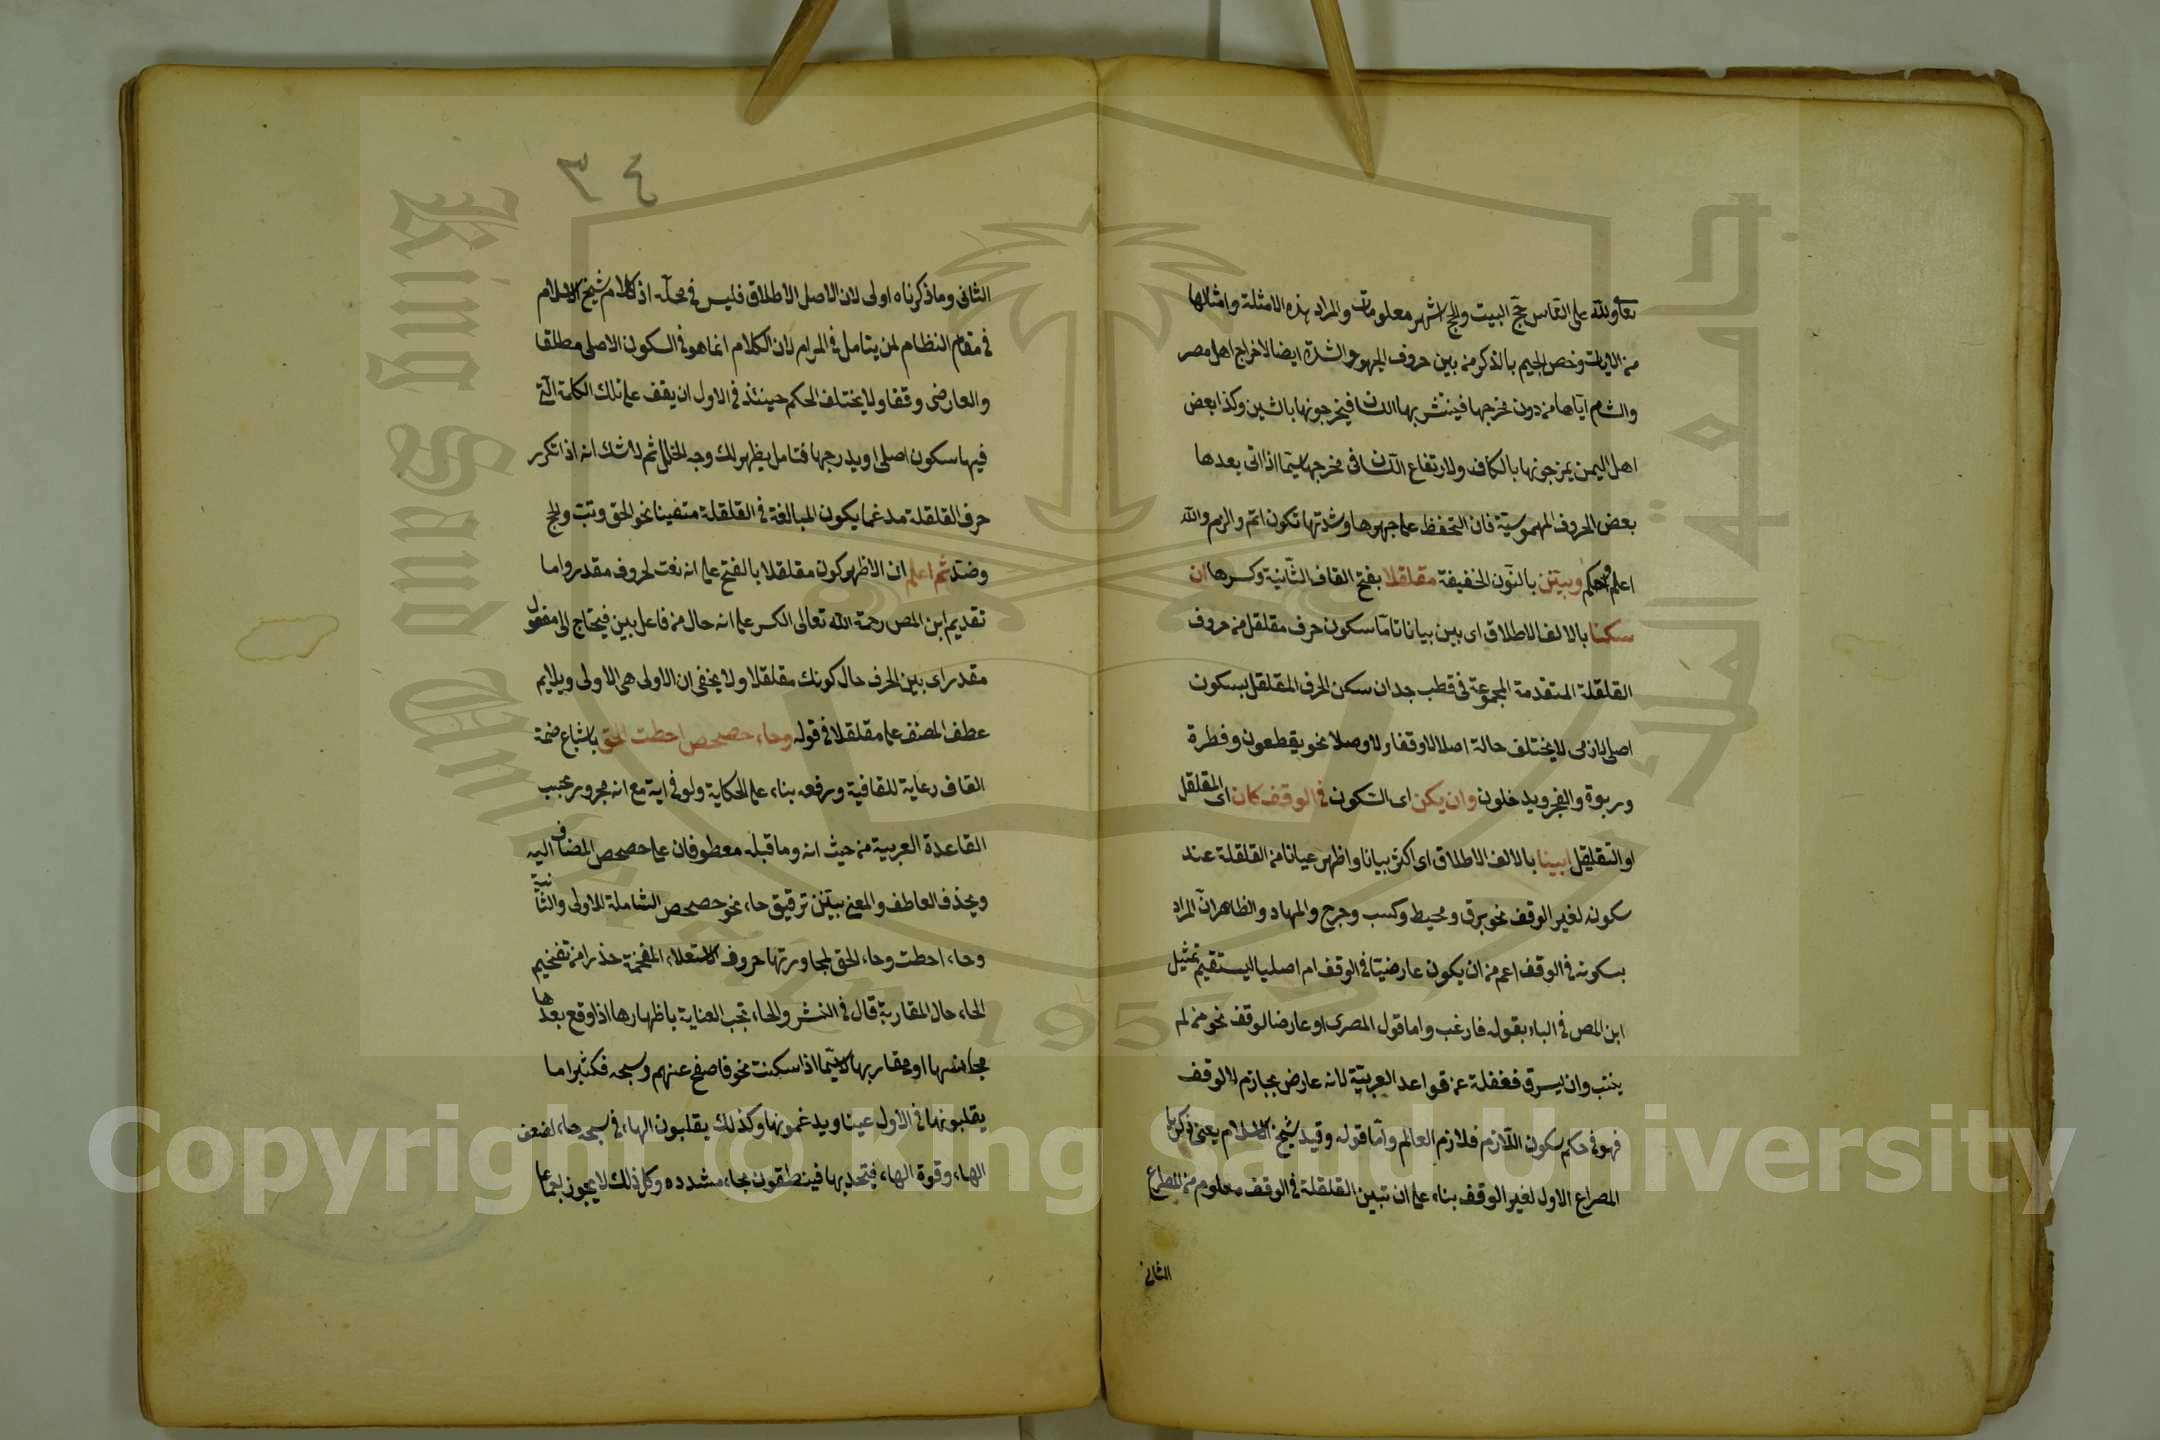 تعالى ولله على الناس حج البيت والحج اشهر معلومات والمراد بهذه الامثلة وامثالها
من الايات وخص الجيم بالذكر من بين حروف الجهر والشدة ايضا لاخراج اهل مصر
والشام اياها من دون مخرجها فينتشر بها اللسان فيخرجونها بالشين وكذا بعض
اهل اليمن يمزجونها بالكاف ولارتفاع اللسان في مخرجها سيما اذا اتى بعدها
بعض الحروف المهموسية فان التحفظ على جهرها وشدتها تكون اتم والزم والله
اعلم واحكم وبينن بالنون الخفيفة مقلقلا بفتح القاف الثانية وكسرها ان
سكنا بالالف الاطلاق اى بين بيانا تاما سكون حرف مقلقل من حروف
القلقلة المتقدمة المجموعة في قطب جد ان سكن الحرف المقلقل بسكون
اصلى لازمى لا يختلف حالة اصلا لا وقفا ولا وصلا نحو يقطعون وفطرة
وربوة والفجر ويدخلون وان يكن اى السكون في الوقف كان اى المقلقل
او التقلقل ابينا بالالف الاطلاق اى اكثر بيانا واظهر عيانا من القلقلة عند
سكونه لغير الوقف نحو برق ومحيط وكسب وجرج والمهاد والظاهر ان المراد
بسكونه في الوقف اعم من ان يكون عارضيا في الوقف ام اصليا ليستقيم تمثيل
ابن المص في الباء بقوله فارغب واما قول المصرى او عارضا لوقف نحو من لم
يتب وان يسرق فغفلة عن قواعد العربية لانه عارض بجازم لا لوقف
فهو في حكم سكون اللازم فلازم العالم واما قوله وقيد شيخ الاسلام يعنى زكريا
المصراع الاول لغير الوقف بناء على ان تبين القلقلة في الوقف معلوم من المصراع
الثانى
٣٤
الثانى وما ذكرناه اولى لان الاصل الاطلاق فليس في محله اذ كلام شيخ الاسلام
في مقام النظام لمن يتامل في المرام لان الكلام انما هو في السكون الاصلى مطلقا
والعارضى وقفا ولا يختلف الحكم حينئذ في الاول ان يقف على تلك الكلمة التى
فيها سكون اصلى او يدرجها فتامل يظهر لك وجه الخلل ثم لا شك انه اذا تكرر
حرف القلقلة مدغما يكون المبالغة في القلقلة متعينا نحو الحق وتب والحج
وضد ثم اعلم ان الاظهر كون مقلقلا بالفتح على انه نعت لحروف مقدر واما
تقديم ابن المص رحمة الله تعالى الكسر على انه حال من فاعل بين فيحتاج الى مفعول
مقدر اى بين الحرف حال كونك مقلقلا ولا يخفى ان الاولى هى الاولى ويلايم
عطف المصنف على مقلقلا في قوله وحاء حصحص احطت الحق باشباع ضمة
القاف رعاية للقافية ورفعه بناء على الحكاية ولو في اية مع انه مجرور بحبب
القاعدة العربية من حيث انه وما قبله معطوفان على حصحص المضاف اليه
ويحذف العاطف والمعنى بينن ترقيق حاء نحو حصحص الشاملة للاولى والثانية
وحاء احطت وحاء الحق لمجاورتها حروف الاستعلاء المفخمة حذرا من تفخيم
الحاء حال المقاربة قال في النشر والحاء تجب العناية باظهارها اذا وقع بعدها
مجانسها او مقاربها لاسيما اذا سكنت نحو فاصفح عنهم وسبحه فكثيرا ما
يقلبونها في الاول عينا ويدغمونها وكذلك يقلبون الهاء في سبحه حاء لضعف
الهاء وقوة الهاء فيتحد بها فينطقون بحاء مشدده وكل ذلك لا يجوز اجماعا
Copyright © King Saud University
King Saud University
جامعة الملك سعود
1957